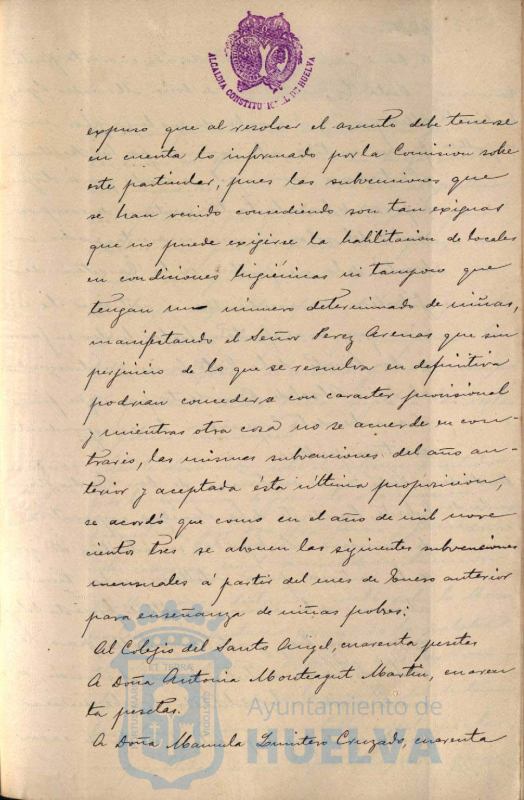 ALCALDIA CONSTITUCIONAL DE HUELVA
expuso que al resolver el asunto debe tenerse
en cuenta lo informado por la Comision sobre
este particular, pues las subvenciones que
se han venido concediendo son tan exiguas
que no puede exigirse la habilitacion de locales
en condiciones higiénicas ni tampoco que
tengan un numero determinado de niñas,
manifestando el Señor Perez Arenas que sin
perjuicio de lo que se resuelva en definitiva
podrian concederse con caracter provisional
y mientras otra cosa no se acuerde en con-
trario, las mismas subvenciones del año an-
terior y aceptada ésta última proposicion,
se acordó que como en el año de mil nove
cientos tres se abonen las siguientes subvenciones
mensuales á partir del mes de Enero anterior
para enseñanza de niñas pobres:
Al Colegio del Santo Angel, cuarenta pesetas
A Doña Antonia Monteagut Martin, cuaren
ta pesetas.
A Doña Manuela Quintero Cruzado, cuarenta
Ayuntamiento de
HUELVA